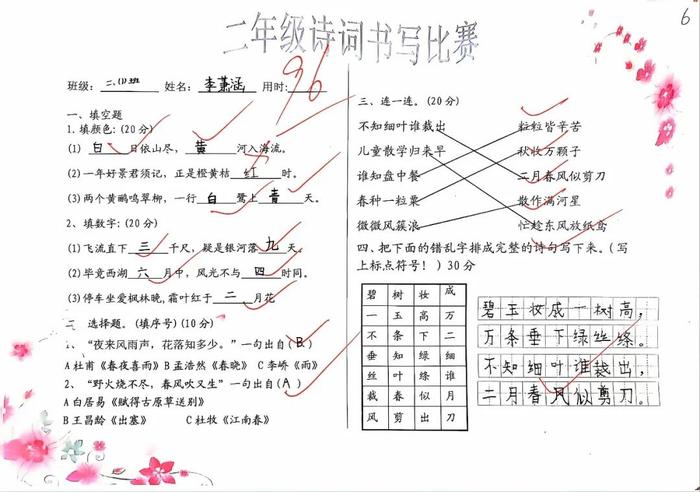 二年级诗词书写比赛
6
班级: 姓名: 李萧涵 用时:
96
一、填空题
1.填颜色: (20分)
(1) 白 日依山尽, 黄 河入海流。
(2)一年好景君须记, 正是橙黄桔 红 时。
(3)两个黄鹂鸣翠柳, 一行 白 鹭上 青 天。
2、填数字: (20分)
(1)飞流直下 三 千尺, 疑是银河落 九 天。
(2)毕竟西湖 六 月中, 风光不与 四 时同。
(3)停车坐爱枫林晚, 霜叶红于 二 月花
选择题。(填序号) (10分)
1、“夜来风雨声, 花落知多少。”一句出自( B )
A 杜甫《春夜喜雨》 B 孟浩然《春晓》 C 李峤《雨》
2、“野火烧不尽, 春风吹又生”一句出自( A )
A 白居易《赋得古原草送别》
B 王昌龄《出塞》 C 杜牧《江南春》
三、连一连。(20分)
不知细叶谁裁出 粒粒皆辛苦
儿童散学归来早 秋收万颗子
谁知盘中餐 二月春风似剪刀
春种一粒粟 散作满河星
微微风簇浪 忙趁东风放纸鸢
四、把下面的错乱字排成完整的诗句写下来。(写
上标点符号! ) 30分
碧 树 妆 成
一 玉 高 万
不 条 下 二
垂 知 绿 细
丝 叶 绦 谁
裁 春 似 月
风 剪 出 刀
碧玉妆成一树高,
万条垂下绿丝绦。
不知细叶谁裁出,
二月春风似剪刀。